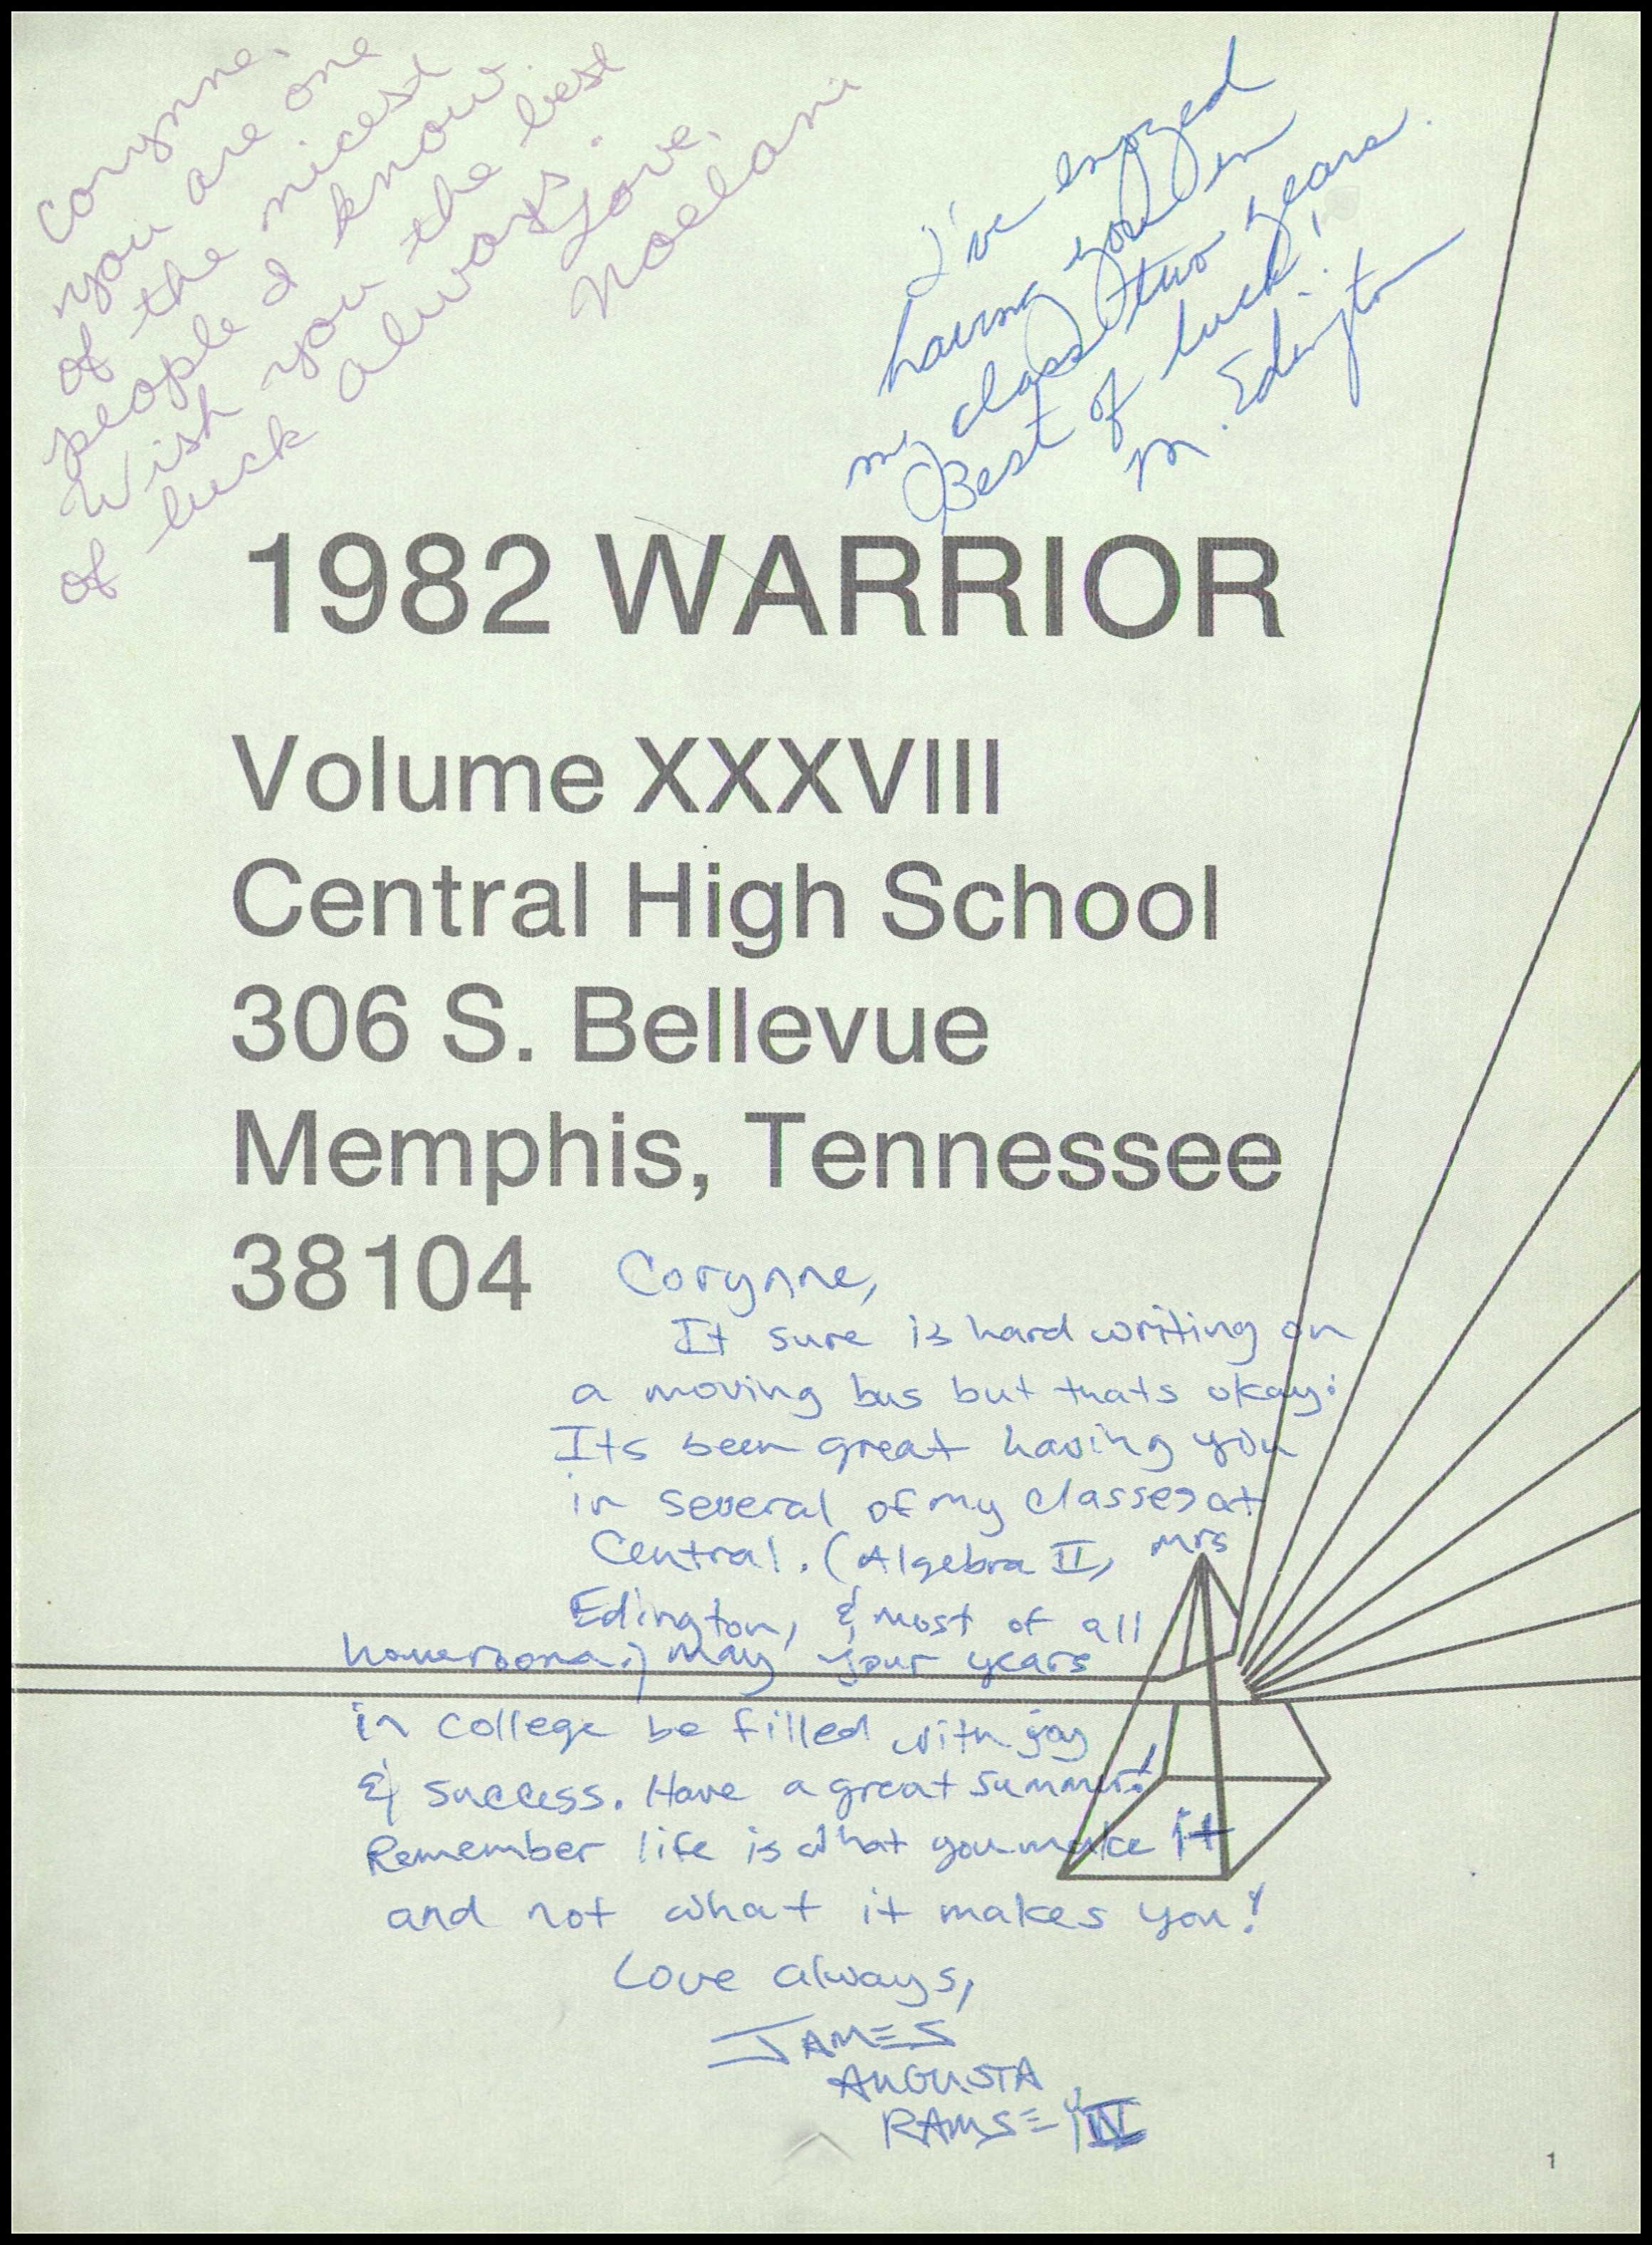 Corynne,
you are one
of the nicest
people I know.
Wish you the best
of luck always.
Love,
Noelani
I've enjoyed
having you in
my class two years.
Best of luck!
M. Edington
1982 WARRIOR
Volume XXXVIII
Central High School
306 S. Bellevue
Memphis, Tennessee
38104
Corynne,
It sure is hard writing on
a moving bus but thats okay!
Its been great having you
in several of my classes at
Central. (Algebra II, Mrs
Edington, & most of all
homeroom.) May your years
in college be filled with joy
& success. Have a great summer!
Remember life is what you make it
and not what it makes you!
Love always,
JAMES
AUGUSTA
RAMSEY IV
1